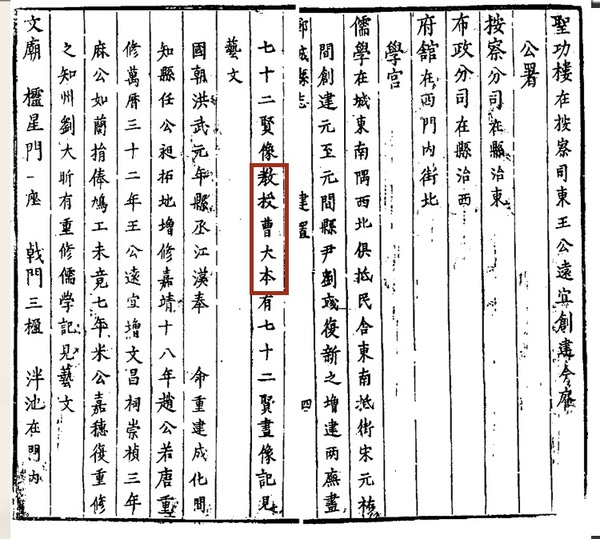 聖功樓在按察司東王公遠宜創建今廢
公署
按察分司在縣治東
布政分司在縣治西
府館在西門内街北
學宮
儒學在城東南隅西北俱抵民舍東南抵街宋元祐
間創建元至元間縣尹劉彧復新之增建两廡畫
郾城縣志 建置 四
七十二賢像教授曹大本有七十二賢畫像記見
藝文
國朝洪武元年縣丞江漢奉 命重建成化間
知縣任公昶拓地增修嘉靖十八年趙公若唐重
修萬厤三十二年王公遠宜增文昌祠崇禎三年
麻公如蘭捐俸鳩工未竟七年米公嘉穗復重修
之知州劉大昕有重修儒學記見藝文
文廟 櫺星門一座 戟門三楹 泮池在門内